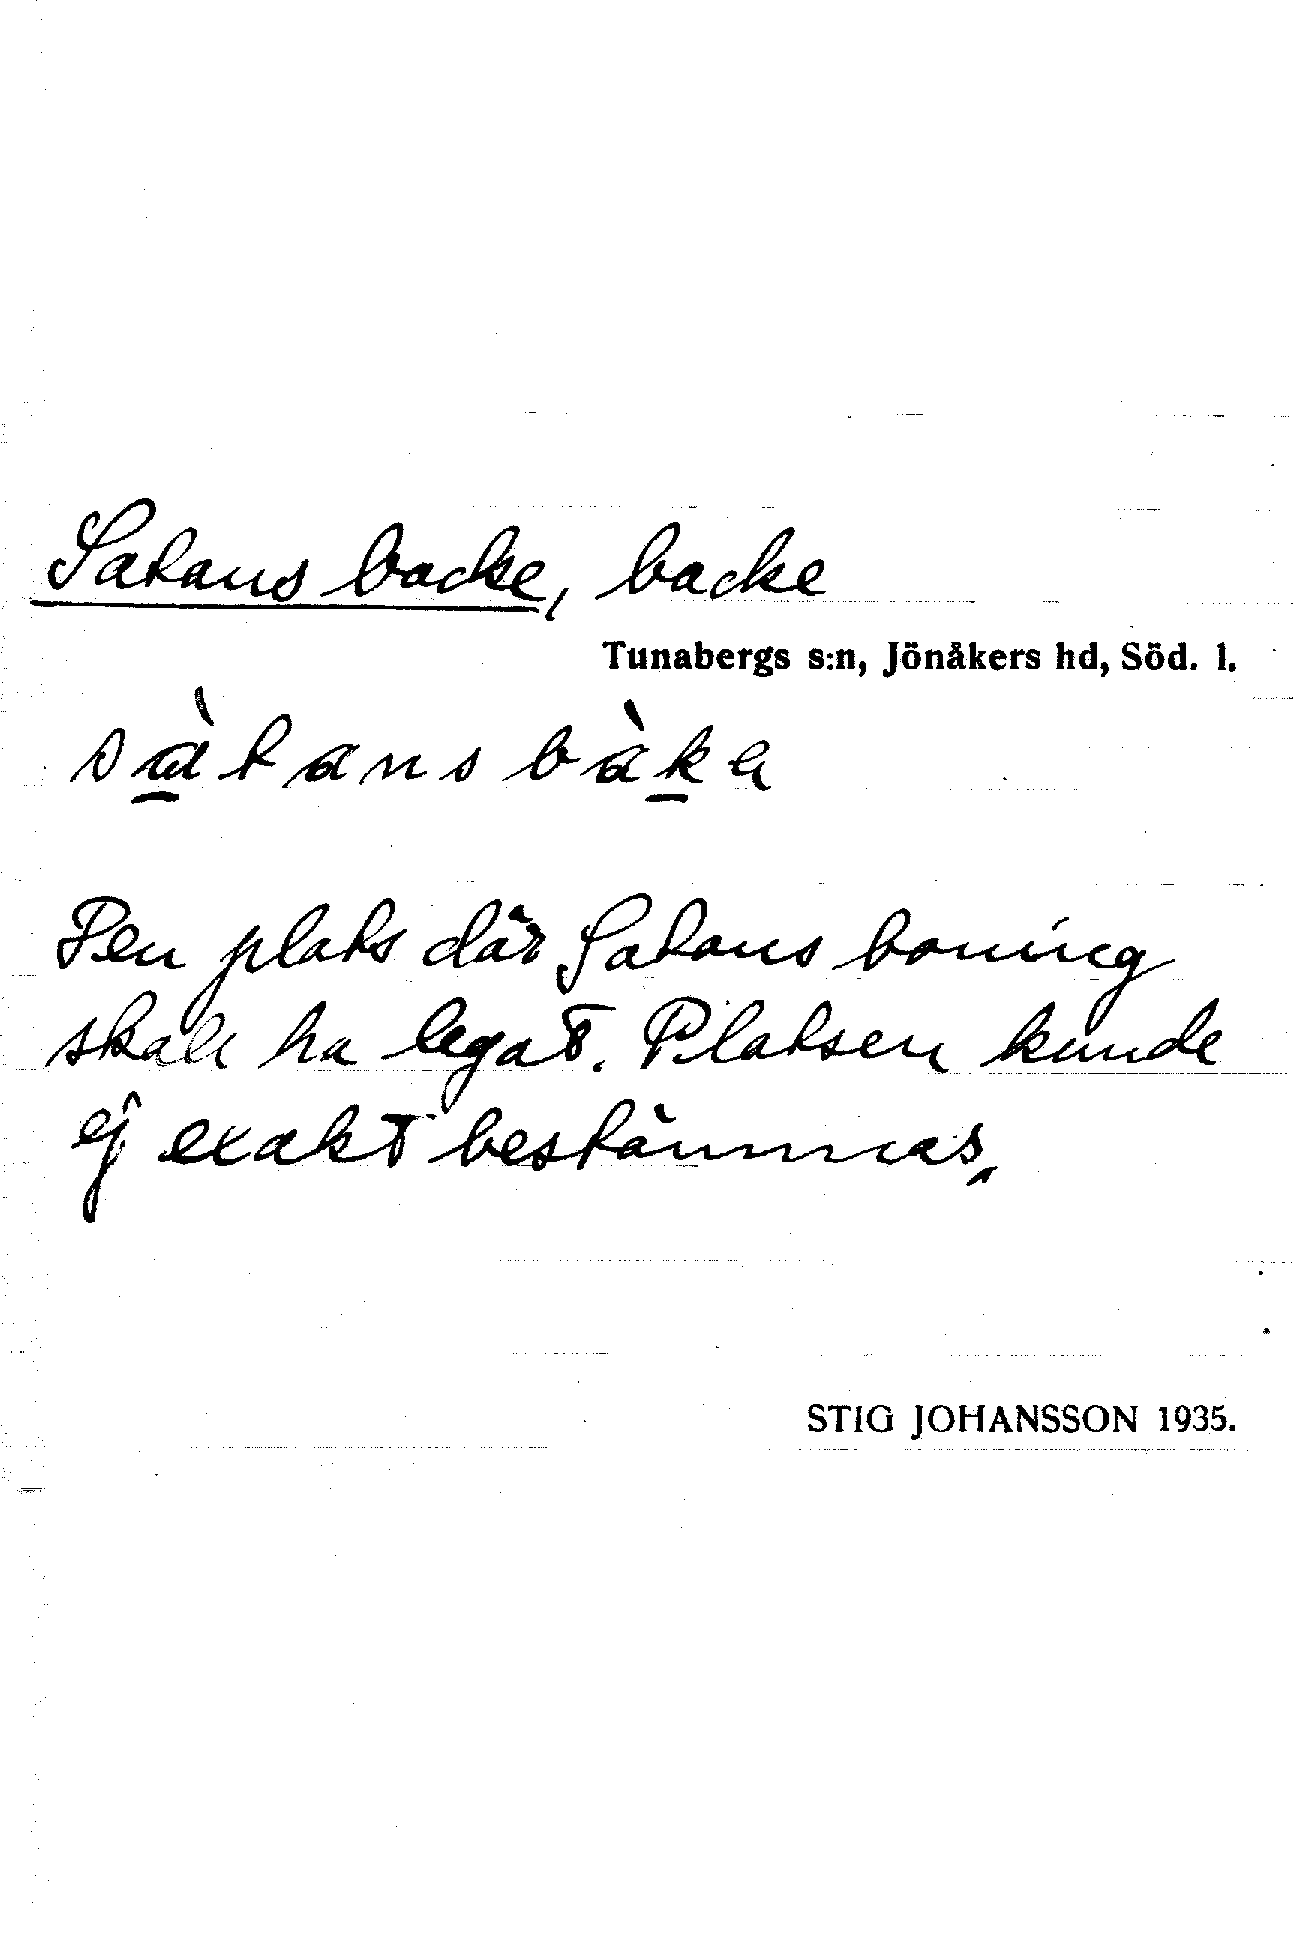 Satans backe, backe
Tunabergs s:n, Jönåkers hd, Söd. l.
sàtansbàka
Den plats där Satans boning
skall ha legat. Platsen kunde
ej exakt bestämmas.
STIG JOHANSSON 1935.